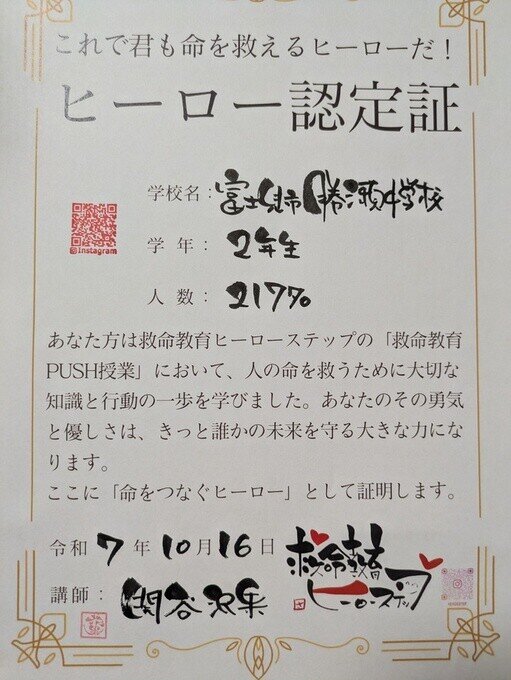 これで君も命を救えるヒーローだ！
ヒーロー認定証
学校名：富士見市勝瀬中学校
Instagram
学年：2年生
人数：217名
あなた方は救命教育ヒーローステップの「救命教育
PUSH授業」において、人の命を救うために大切な
知識と行動の一歩を学びました。あなたのその勇気
と優しさは、きっと誰かの未来を守る大きな力にな
ります。
ここに「命をつなぐヒーロー」として証明します。
令和7年10月16日
救命教育
ヒーローステップ
講師：関谷